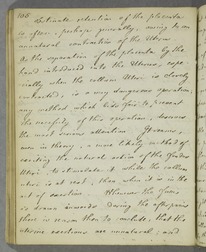 108
Obstinate retention of the placenta
is often, perhaps generally, owing to an
unnatural contraction of the Uterus.
As the separation of the placenta by the
hand introduced into the Uterus, espe
cially when the cervix Uteri is closely
contracted, is a very dangerous operation,
any method which bids fair to prevent
the necessity of this operation, deserves
the most serious attention.
in theory, a more likely method of
exciting the natural action of the fundus
Uteri, to stimulate it while the
uteri is at rest, than when it is in the
act of exertion. Whenever the funis
is drawn inwards during the afterpains
there is reason then to conclude, that the
uterine exertions are unnatural; and